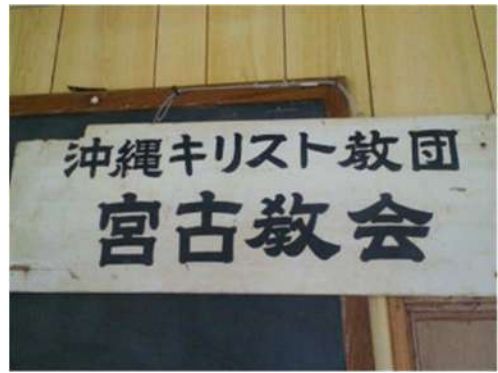 沖縄キリスト教団
宮古教会